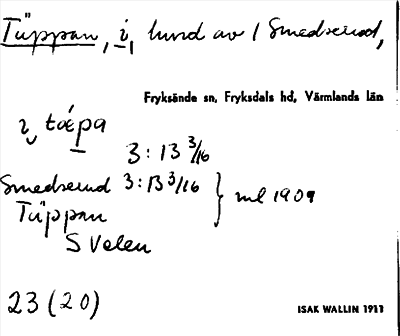 Tüppan, i, lund av / Smedserud,
Fryksände sn, Fryksdals hd, Värmlands län
i tǽpa
3:13 3/16
Smedserud 3:13 3/16 } ml 1909
Tüppan
S Velen
23 (20)
ISAK WALLIN 1911